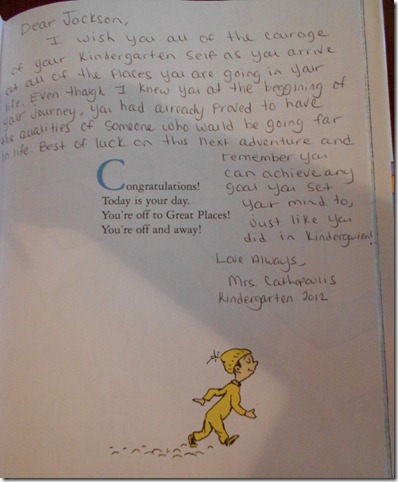 Dear Jackson,
I wish you all of the courage
of your Kindergarten self as you arrive
at all of the places you are going in your
life. Even though I knew you at the beggining of
your journey, you had already proved to have
the qualities of someone who would be going far
in life. Best of luck on this next adventure and
remember you
can achieve any
goal you set
your mind to,
just like you
did in Kindergarten!
Love Always,
Mrs. Cathopoulis
Kindergarten 2012
Congratulations!
Today is your day.
You're off to Great Places!
You're off and away!